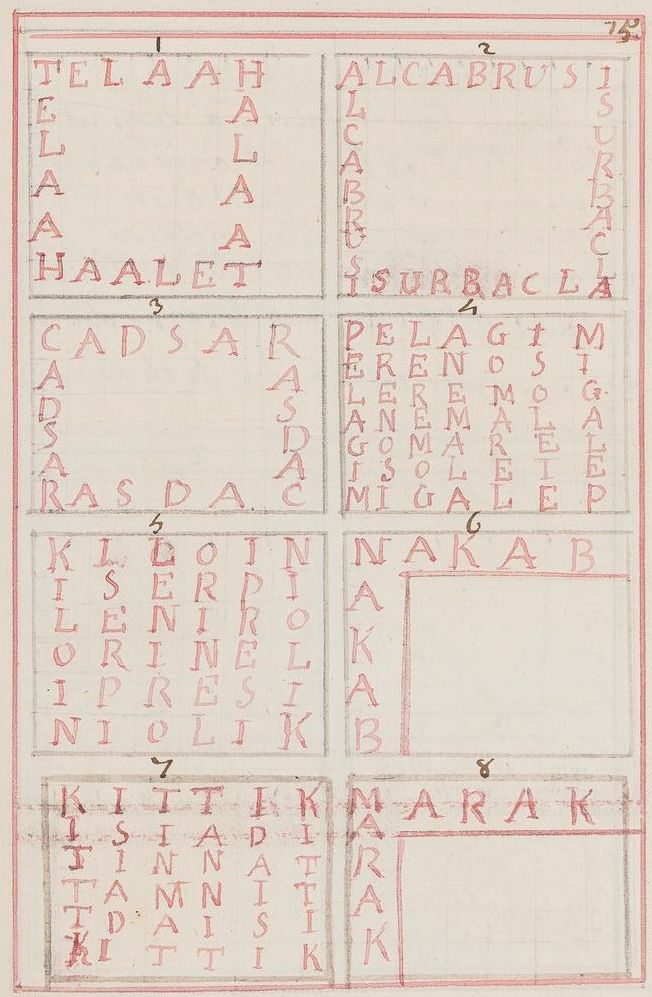 75
1
TELAAH
E A
L L
A A
A A
HAALET
2
ALCABRUSI
L S
C U
A R
B B
R A
U C
S L
ISURBACLA
3
CADSAR
A A
D S
S D
A A
RASDAC
4
PELAGIM
ERENOSI
LEREMOG
ANEMALA
GOMAREL
ISOLEIE
MIGALEP
5
KILOIN
ISERPI
LENIRO
ORINEL
IPRESI
NIOLIK
6
NAKAB
A
K
A
B
7
KITTIK
ISIADI
TINNAT
TAMNIT
TDAISI
KITTIK
8
MARAK
A
R
A
K